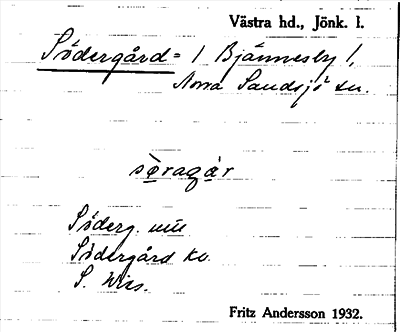 Västra hd., Jönk. l.
Södergård = / Bjännesby /,
Norra Sandsjö sn.
sọ̀ragàr
Söderg.
Södergård ko.
S.
Fritz Andersson 1932.